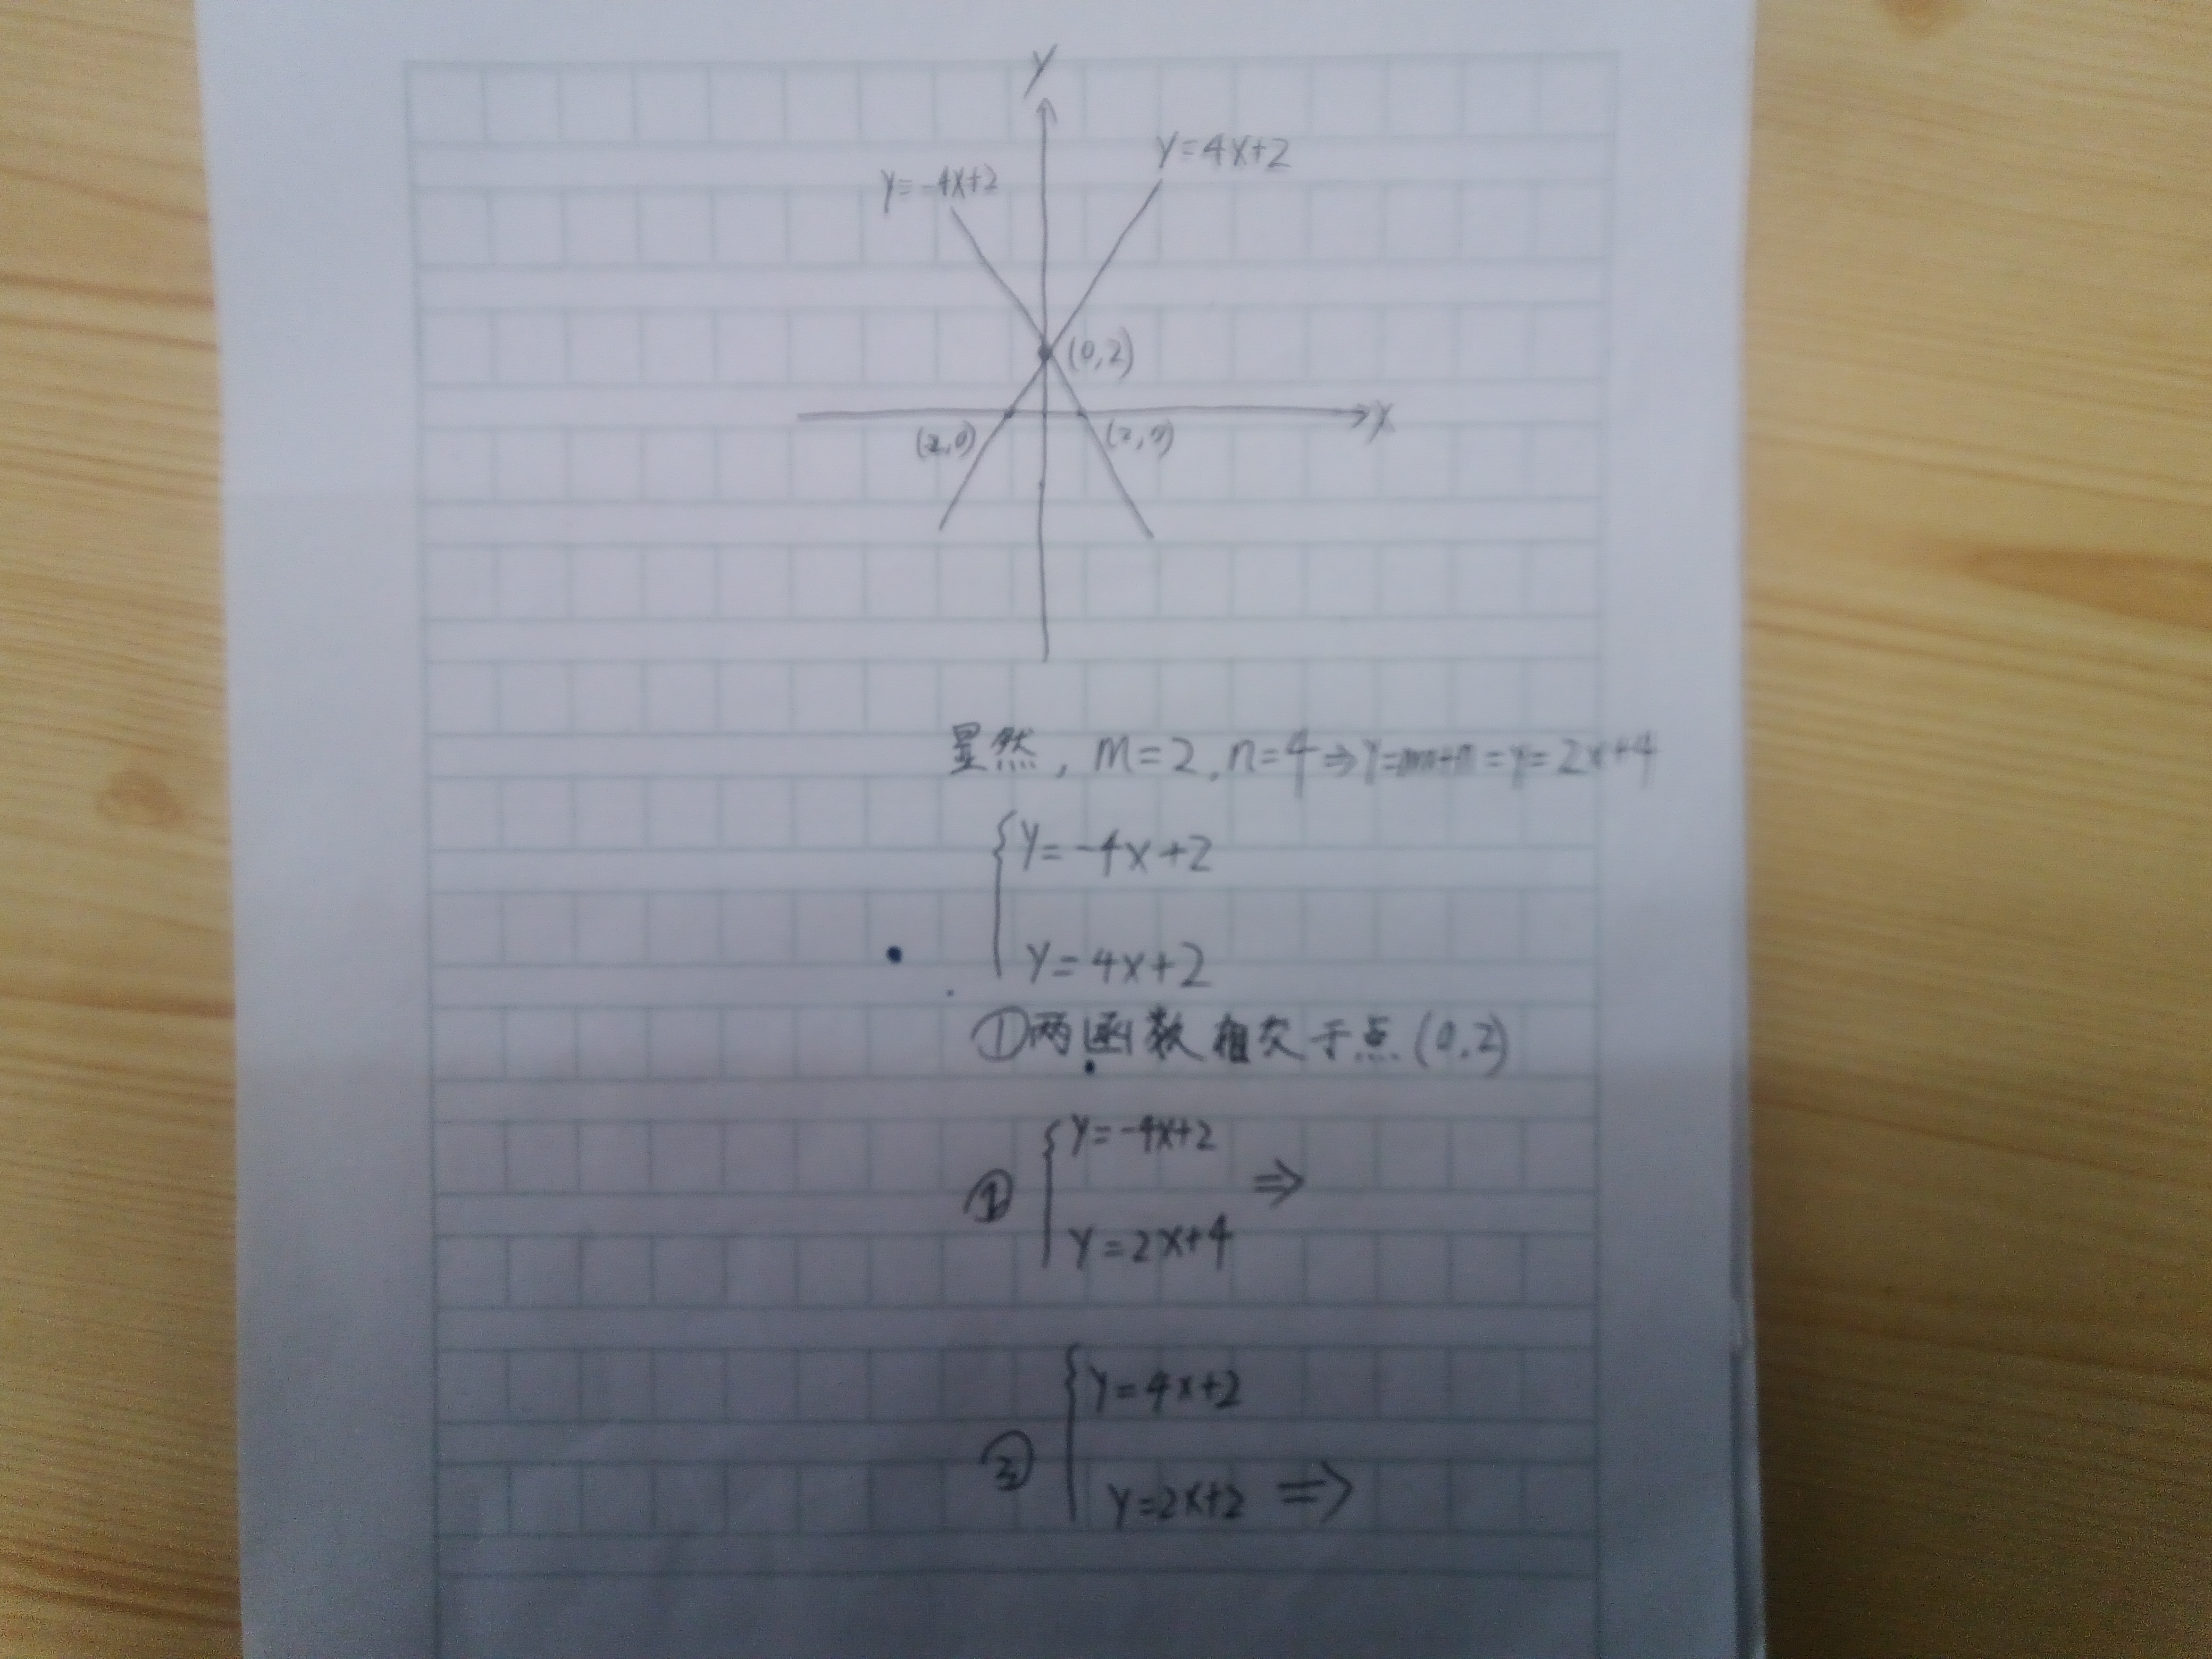 y
y=4x+2
y=-4x+2
(0,2)
x
(2,0)
(2,0)
显然, m=2, n=4⇒y=mx+n=y=2x+4
{y=-4x+2
y=4x+2
①两函数相交于点(0,2)
{y=-4x+2
① ⇒
y=2x+4
{y=4x+2
②
y=2x+2 ⇒